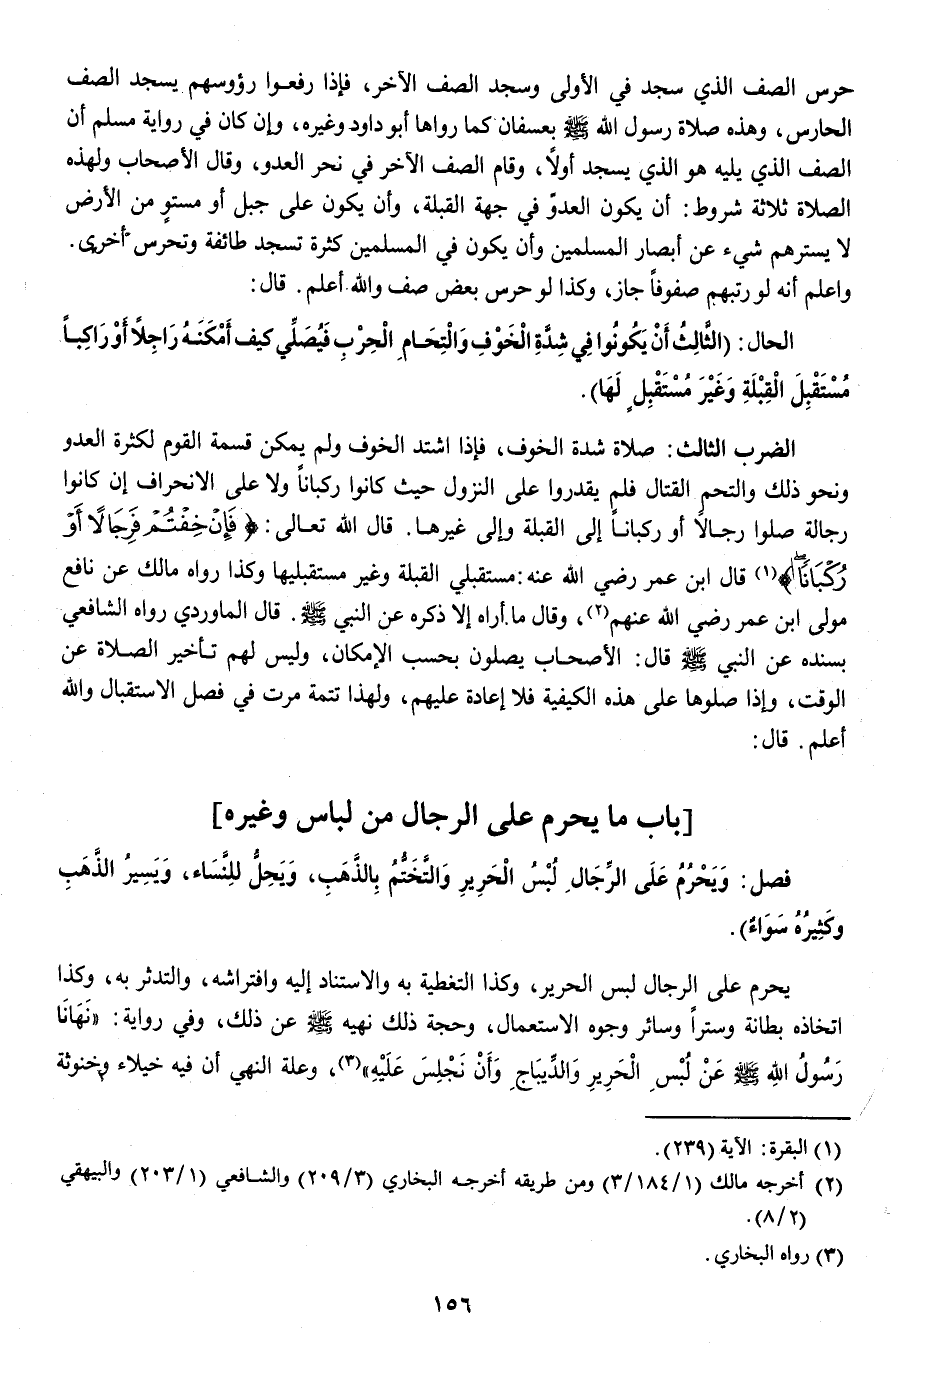 حرس الصف الذي سجد في الأولى وسجد الصف الآخر، فإذا رفعوا رؤوسهم يسجد الصف
الحارس، وهذه صلاة رسول الله ﷺ بعسفان كما رواها أبو داود وغيره، وإن كان في رواية مسلم أن
الصف الذي يليه هو الذي يسجد أولاً، وقام الصف الآخر في نحر العدو، وقال الأصحاب ولهذه
الصلاة ثلاثة شروط: أن يكون العدوّ في جهة القبلة، وأن يكون على جبل أو مستوٍ من الأرض
لا يسترهم شيء عن أبصار المسلمين وأن يكون في المسلمين كثرة تسجد طائفة وتحرس أخرى.
واعلم أنه لو رتبهم صفوفاً جاز، وكذا لو حرس بعض صف والله أعلم. قال:
الحال: (الثَّالِثُ أَنْ يَكُونُوا فِي شِدَّةِ الْخَوْفِ وَالْتِحَامِ الْحِرْبِ فَيُصَلِّي كيف أَمْكَنَهُ رَاجِلاً أَوْ رَاكِباً
مُسْتَقْبِلَ الْقِبْلَةِ وَغَيْرَ مُسْتَقْبِلٍ لَهَا).
الضرب الثالث: صلاة شدة الخوف، فإذا اشتد الخوف ولم يمكن قسمة القوم لكثرة العدو
ونحو ذلك والتحم القتال فلم يقدروا على النزول حيث كانوا ركباناً ولا على الانحراف إن كانوا
رجالة صلوا رجالاً أو ركباناً إلى القبلة وإلى غيرها. قال الله تعالى: ﴿فَإِنْ خِفْتُمْ فَرِجَالًا أَوْ
رُكْبَانًا﴾(١) قال ابن عمر رضي الله عنه: مستقبلي القبلة وغير مستقبليها وكذا رواه مالك عن نافع
مولى ابن عمر رضي الله عنهم(٢)، وقال ما أراه إلا ذكره عن النبي ﷺ. قال الماوردي رواه الشافعي
بسنده عن النبي ﷺ قال: الأصحاب يصلون بحسب الإمكان، وليس لهم تأخير الصلاة عن
الوقت، وإذا صلوها على هذه الكيفية فلا إعادة عليهم، ولهذا تتمة مرت في فصل الاستقبال والله
أعلم. قال:
[باب ما يحرم على الرجال من لباس وغيره]
فصل: وَيَحْرُمُ عَلَى الرِّجَالِ لُبْسُ الْحَرِيرِ وَالتَّخَتُّمُ بِالذَّهَبِ، وَيَحِلُّ لِلنِّسَاء، وَيَسِيرُ الذَّهَبِ
وكَثِيرُهُ سَوَاءٌ).
يحرم على الرجال لبس الحرير، وكذا التغطية به والاستناد إليه وافتراشه، والتدثر به، وكذا
اتخاذه بطانة وستراً وسائر وجوه الاستعمال، وحجة ذلك نهيه ﷺ عن ذلك، وفي رواية: «نَهَانَا
رَسُولُ اللهِ ﷺ عَنْ لُبْسِ الْحَرِيرِ وَالدِّيبَاجِ وَأَنْ نَجْلِسَ عَلَيْهِ»(٣)، وعلة النهي أن فيه خيلاء وخنوثة
(١) البقرة: الآية (٢٣٩).
(٢) أخرجه مالك (٣/١٨٤/١) ومن طريقه أخرجه البخاري (٢٠٩/٣) والشافعي (٢٠٣/١) والبيهقي
(٨/٢).
(٣) رواه البخاري.
١٥٦